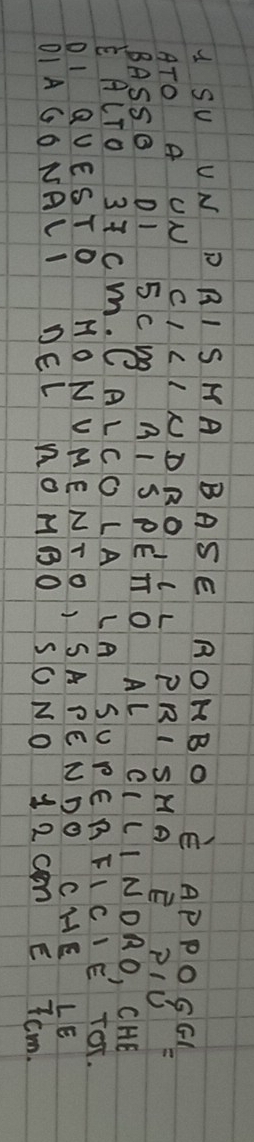 1 SU UN PRISMA BASE ROMBO È APPOGGI=
ATO A UN CILINDRO. IL PRISMA È PIÙ
BASSO DI 5cm RISPETTO AL CILINDRO, CHE
È ALTO 37cm. CALCOLA LA SUPERFICIE TOT.
DI QUESTO MONUMENTO, SAPENDO CHE LE
DIAGONALI DEL ROMBO SONO 12cm E 7cm.